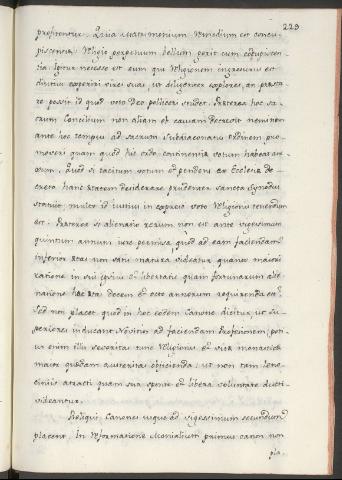 223
profitentur. Quia matrimonium remedium est concu-
piscentiæ: Religio perpetuum bellum gerit cum concupiscen-
tia. Igitur necesse est eum qui religionem ingressurus est
diutius experiri vires suas, ut diligenter exploret, an præsta-
re possit id quod voto Deo polliceri studet. Præterea hoc sa-
crum Concilium non aliam ob causam decrevit neminem
ante hoc tempus ad sacrum subdiaconatus ordinem pro-
moveri quam quod hic ordo continentiæ votum habeat an-
nexum. Quod si tacitum votum et pendens ex Ecclesiæ de-
creto hanc ætatem desiderare prudenter sancta synodus
statuit, multo id iustius in expresso voto Religionis tenendum
est. Præterea si alienatio rerum non est ante vigesimum
quintum annum iure permissa, quod ad eam faciendam
inferior ætas non satis matura videatur, quanto maiori
ratione in sui ipsius et libertatis quam fortunarum alie-
natione hæc ætas decem et octo annorum requirenda est?
Sed non placet quod in hoc eodem Canone dicitur, ut su-
periores inducant Novitios ad faciendam Professionem; poti-
us enim illis severitas tunc Religionis et vitæ monasticæ
maior quædam austeritas obiicienda, ut non tam leno-
ciniis attracti quam sua sponte et libera voluntate ducti
videantur.
Reliqui Canones usque ad vigesimum secundum
placent. In Reformatione Monialium primus canon non
pla-